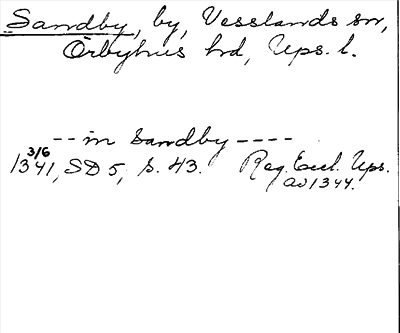 Sandby, by, Vesslands sn,
Örbyhus hd, Ups. l.
-- in Sandby ----
3/6
1341, SD 5, s. 43. Reg. Eccl. Ups.
av 1344.